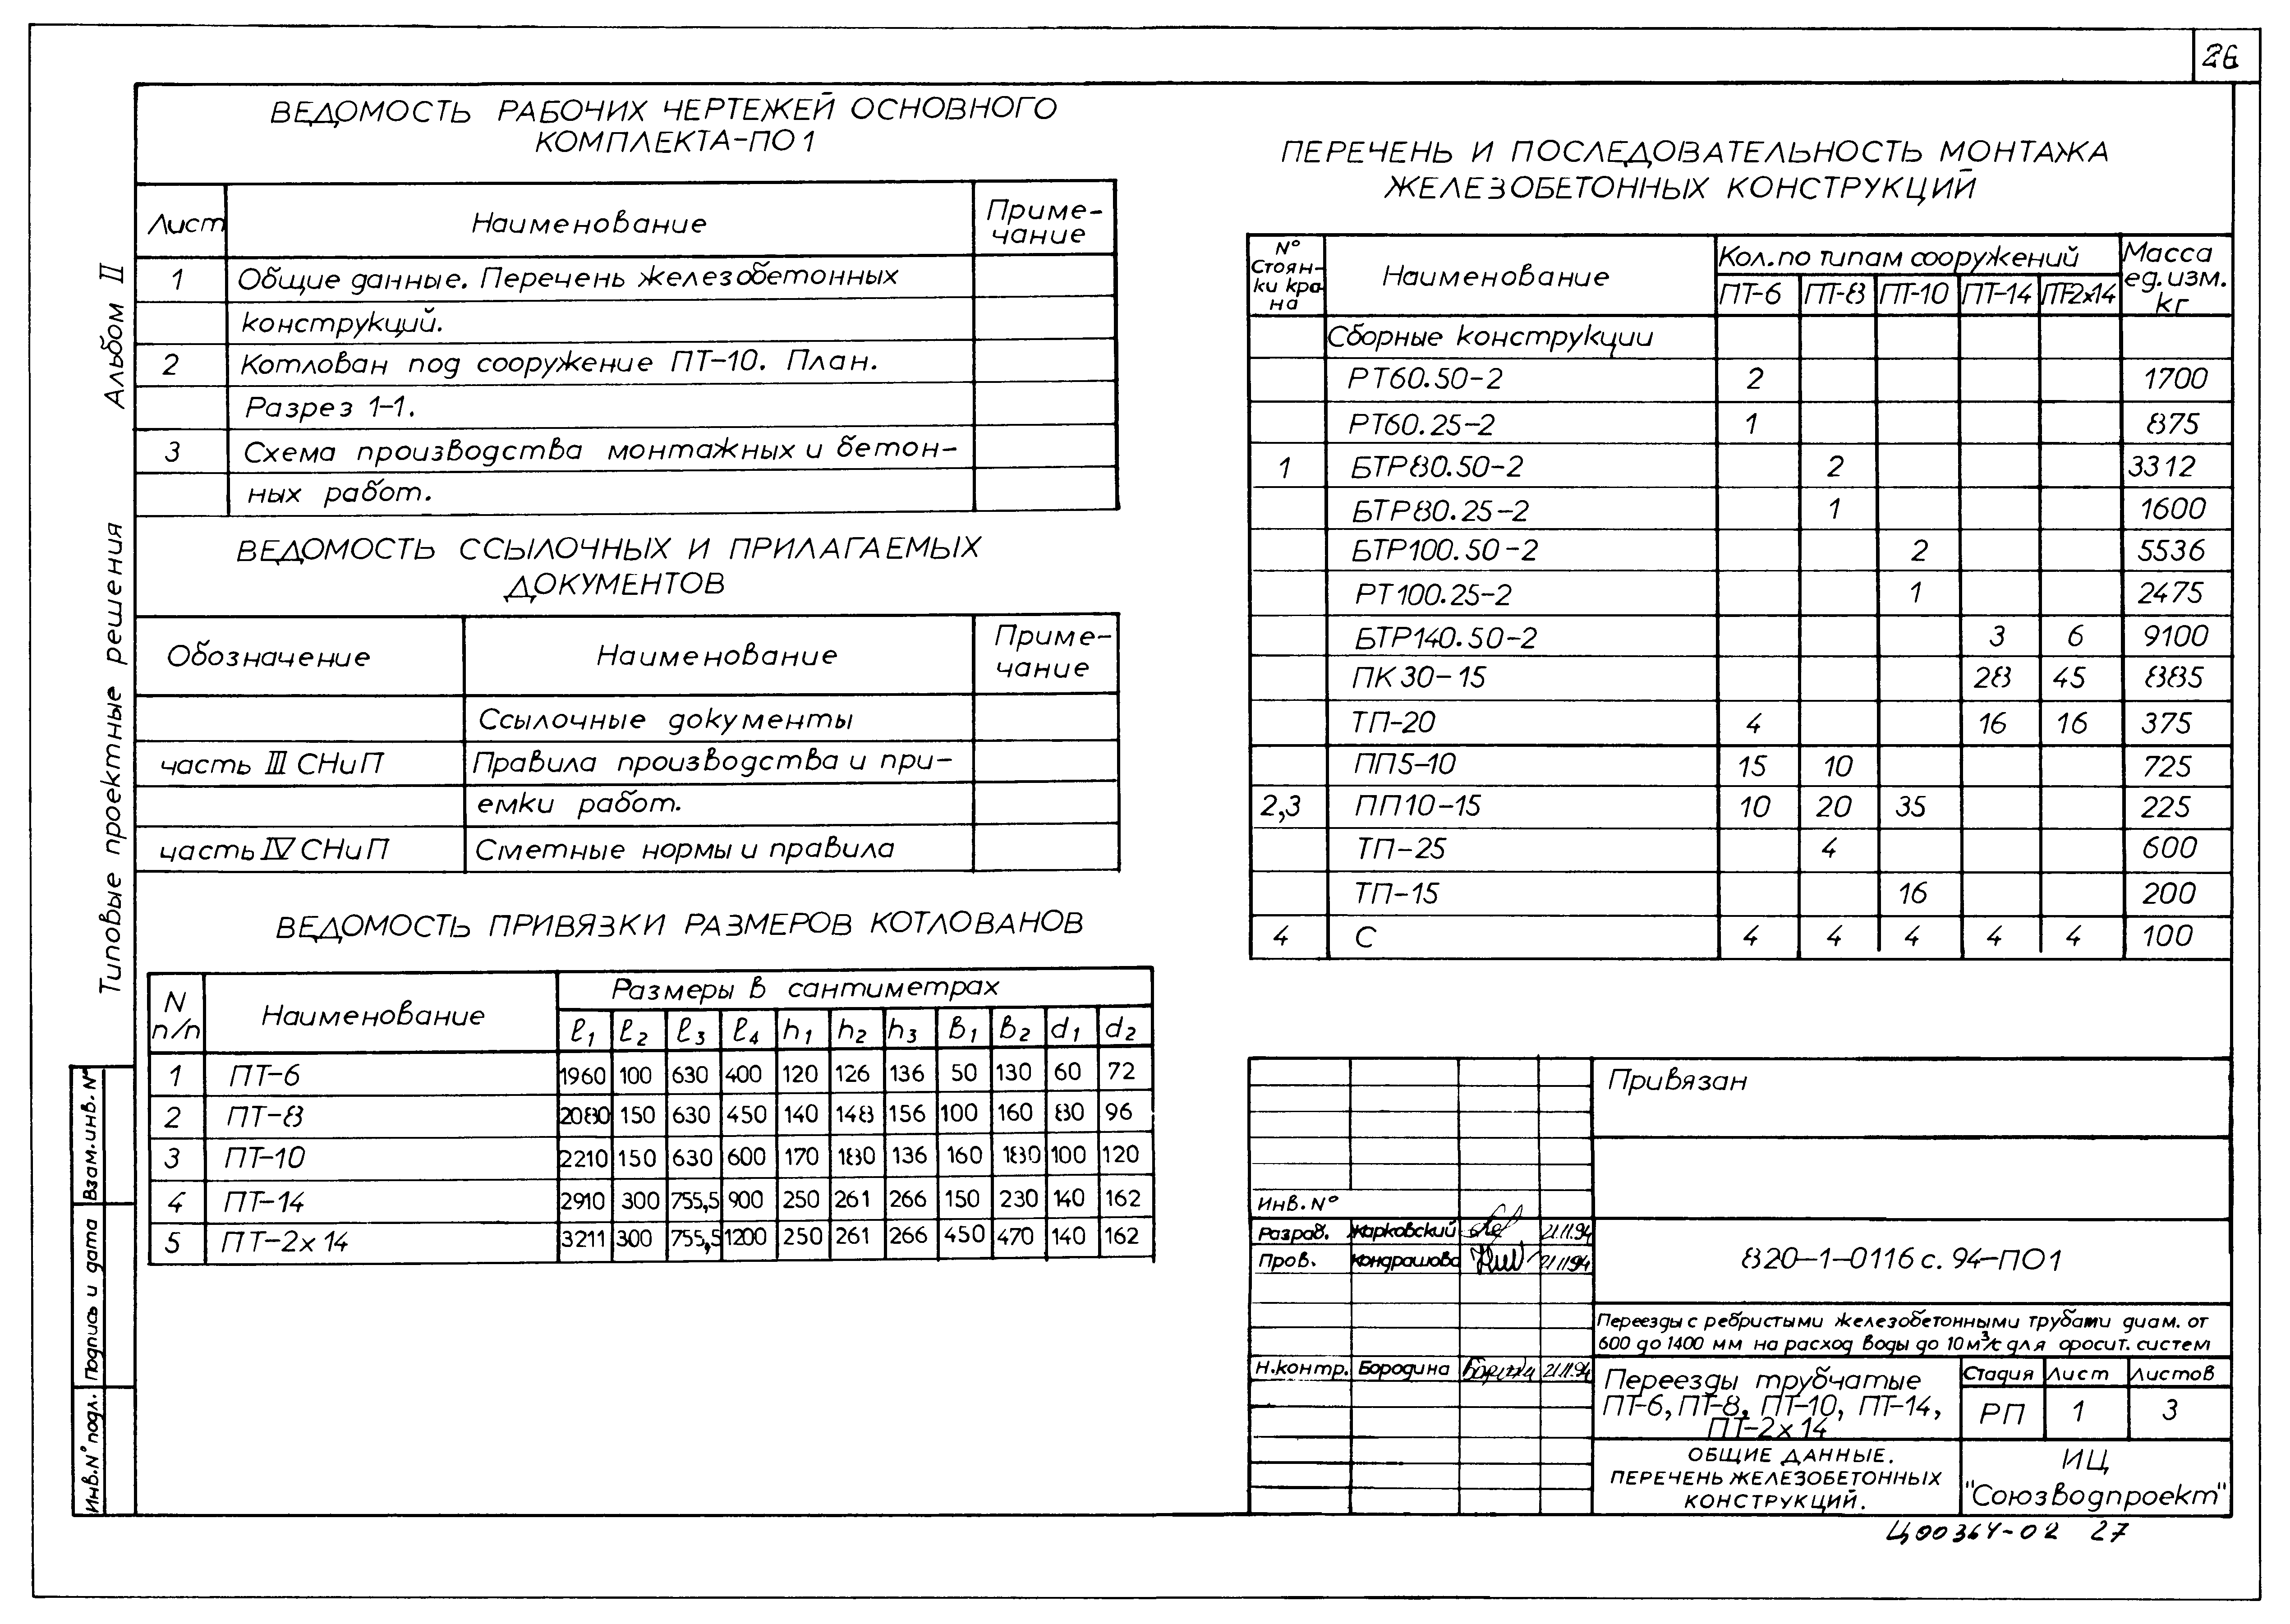 26
ВЕДОМОСТЬ РАБОЧИХ ЧЕРТЕЖЕЙ ОСНОВНОГО
КОМПЛЕКТА-ПО1
Лист Наименование Приме-
чание
1 Общие данные. Перечень железобетонных
конструкций.
2 Котлован под сооружение ПТ-10. План.
Разрез 1-1.
3 Схема производства монтажных и бетон-
ных работ.
ВЕДОМОСТЬ ССЫЛОЧНЫХ И ПРИЛАГАЕМЫХ
ДОКУМЕНТОВ
Обозначение Наименование Приме-
чание
Ссылочные документы
часть III СНиП Правила производства и при-
емки работ.
часть IV СНиП Сметные нормы и правила
ВЕДОМОСТЬ ПРИВЯЗКИ РАЗМЕРОВ КОТЛОВАНОВ
N п/п Наименование Размеры в сантиметрах
ℓ1 ℓ2 ℓ3 ℓ4 h1 h2 h3 в1 в2 d1 d2
1 ПТ-6 1960 100 630 400 120 126 136 50 130 60 72
2 ПТ-8 2080 150 630 450 140 148 156 100 160 80 96
3 ПТ-10 2210 150 630 600 170 180 136 160 180 100 120
4 ПТ-14 2910 300 755,5 900 250 261 266 150 230 140 162
5 ПТ-2х14 3211 300 755,5 1200 250 261 266 450 470 140 162
ПЕРЕЧЕНЬ И ПОСЛЕДОВАТЕЛЬНОСТЬ МОНТАЖА
ЖЕЛЕЗОБЕТОННЫХ КОНСТРУКЦИЙ
N°
Стоян-
ки кра-
на
Наименование
Кол. по типам сооружений
ПТ-6 ПТ-8 ПТ-10 ПТ-14 ПТ-2х14
Масса
ед.изм.
кг
Сборные конструкции
РТ60.50-2 2 1700
РТ60.25-2 1 875
1 БТР80.50-2 2 3312
БТР80.25-2 1 1600
БТР100.50-2 2 5536
РТ100.25-2 1 2475
БТР140.50-2 3 6 9100
ПК30-15 28 45 885
ТП-20 4 16 16 375
ПП5-10 15 10 725
2,3 ПП10-15 10 20 35 225
ТП-25 4 600
ТП-15 16 200
4 С 4 4 4 4 4 100
Привязан
Инв. N°
Разраб. Жарковский 21.11.94
Пров. Кондрашова 21.11.94
Н.контр. Бородина 21.11.94
820-1-0116 с. 94-ПО1
Переезды с ребристыми железобетонными трубами диам. от
600 до 1400 мм на расход воды до 10м³/с для оросит. систем
Переезды трубчатые
ПТ-6, ПТ-8, ПТ-10, ПТ-14,
ПТ-2х14
Стадия Лист Листов
РП 1 3
ОБЩИЕ ДАННЫЕ.
ПЕРЕЧЕНЬ ЖЕЛЕЗОБЕТОННЫХ
КОНСТРУКЦИЙ.
ИЦ
"Союзводпроект"
Ц00364-02 27
Типовые проектные решения Альбом III
Инв.N° подл. Подпись и дата Взам.инв.N°